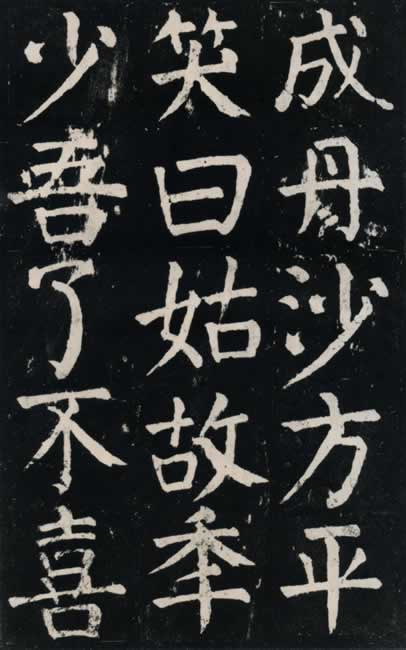 成丹沙方平
笑曰姑故年
少吾了不喜